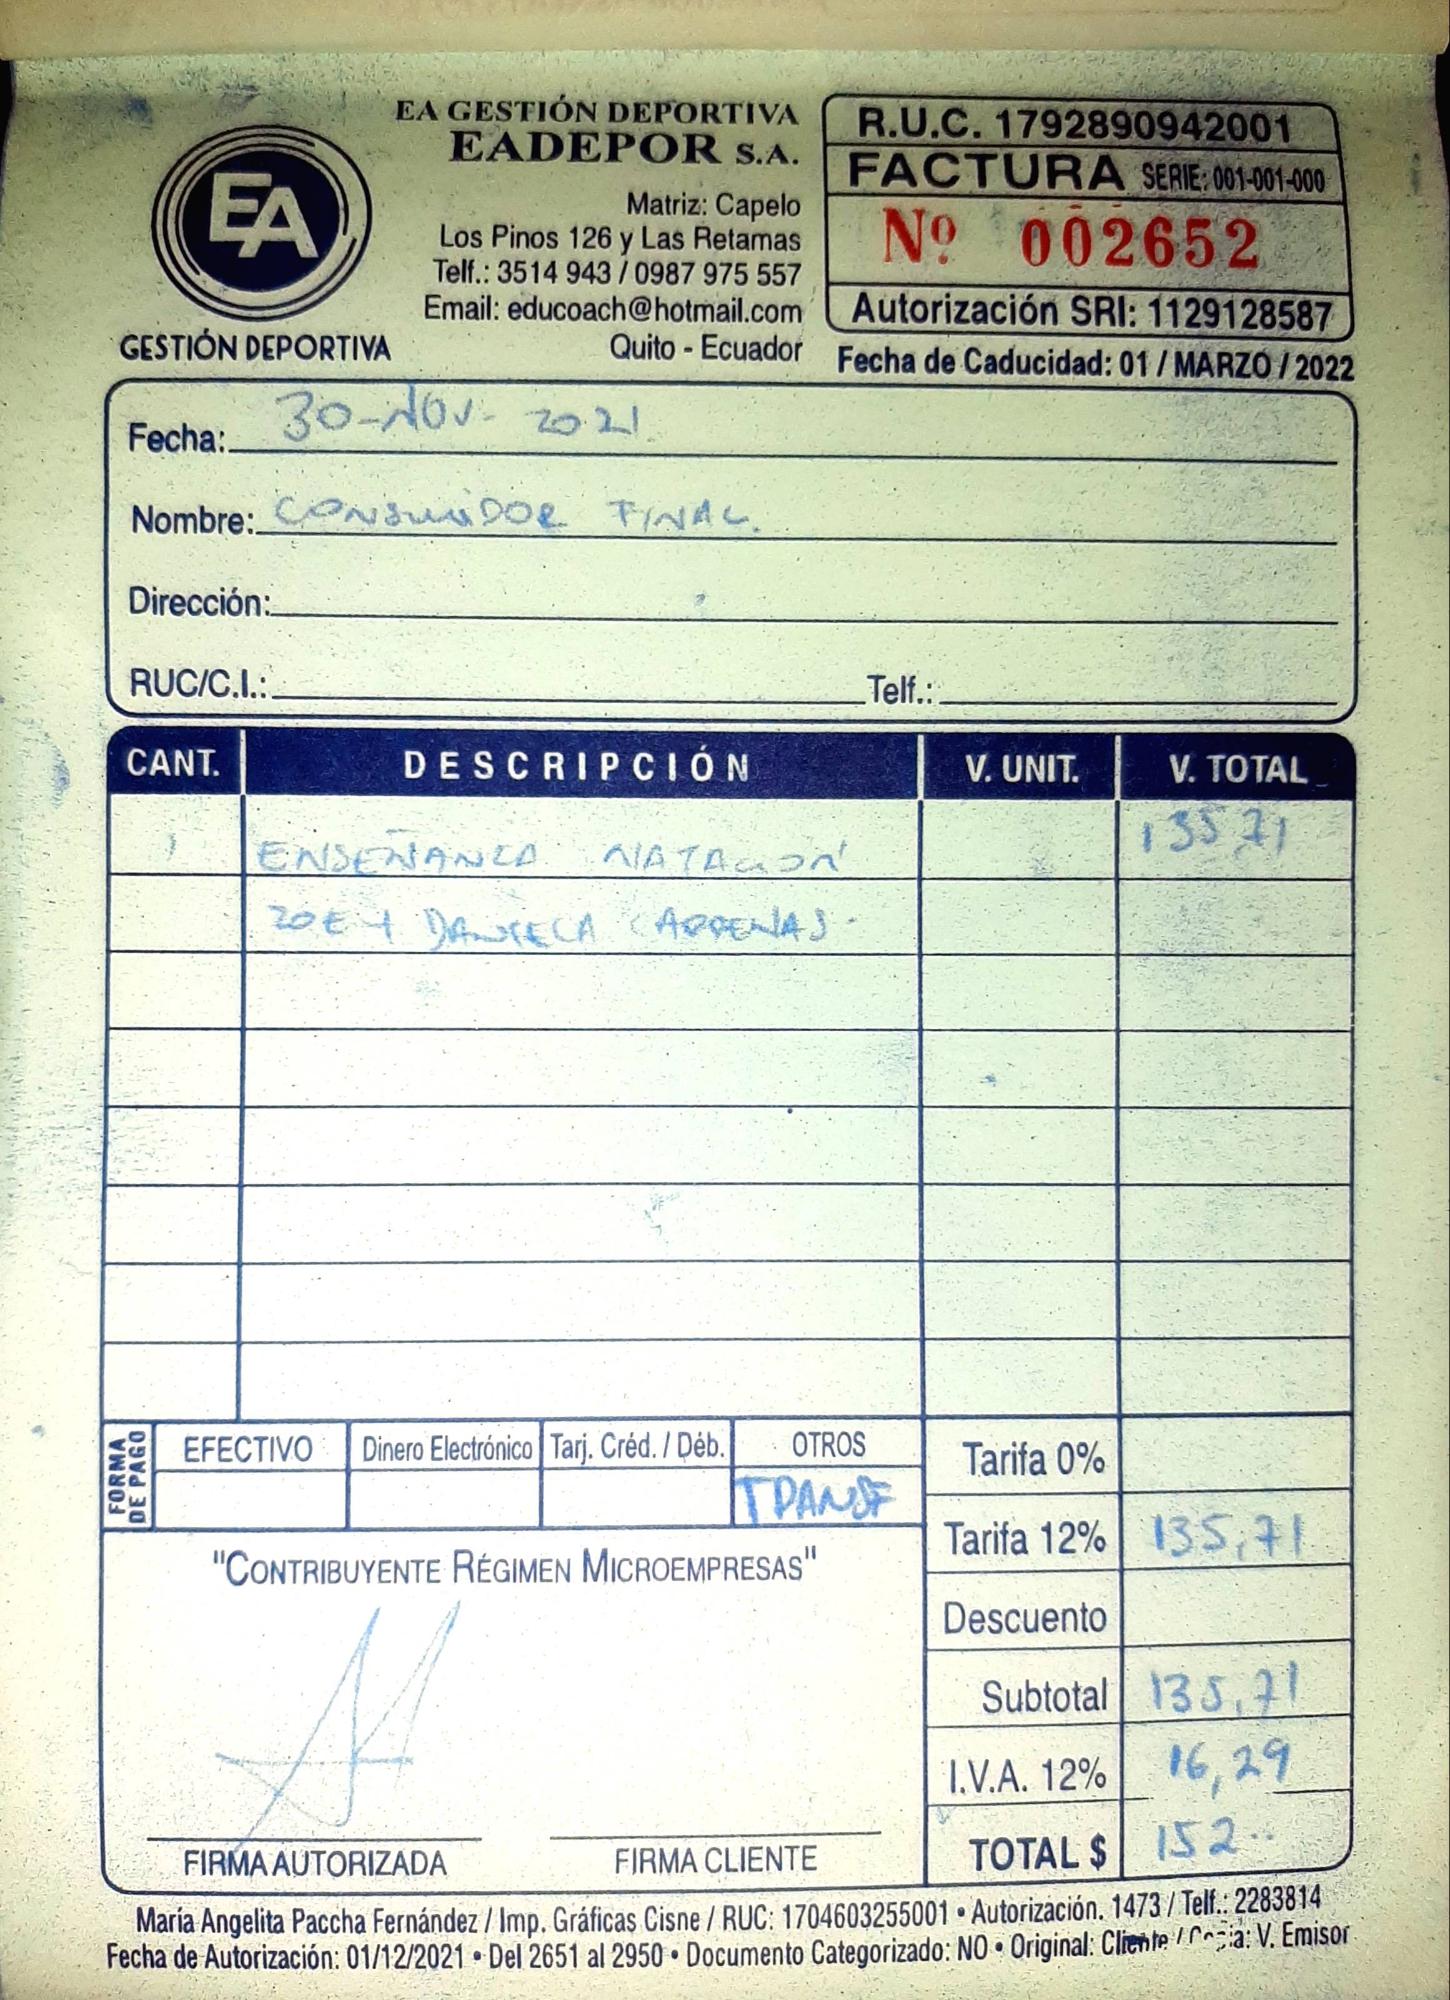 EA GESTIÓN DEPORTIVA
EADEPOR S.A.
EA
GESTIÓN DEPORTIVA
Matriz: Capelo
Los Pinos 126 y Las Retamas
Telf.: 3514 943 / 0987 975 557
Email: educoach@hotmail.com
Quito - Ecuador
R.U.C. 1792890942001
FACTURA SERIE: 001-001-000
Nº 002652
Autorización SRI: 1129128587
Fecha de Caducidad: 01 / MARZO / 2022
Fecha: 30-NOV- 2021
Nombre: CONSUMIDOR FINAL.
Dirección:
RUC/C.I.: Telf.:
CANT. DESCRIPCIÓN V. UNIT. V. TOTAL
1 ENSEÑANZA NATACIÓN 135,71
ZOE Y DANIELA CARDENAS.
FORMA DE PAGO EFECTIVO Dinero Electrónico Tarj. Créd. / Déb. OTROS
TRANSF
Tarifa 0%
Tarifa 12% 135,71
Descuento
Subtotal 135,71
I.V.A. 12% 16,29
TOTAL $ 152..
"CONTRIBUYENTE RÉGIMEN MICROEMPRESAS"
FIRMA AUTORIZADA FIRMA CLIENTE
María Angelita Paccha Fernández / Imp. Gráficas Cisne / RUC: 1704603255001 • Autorización. 1473 / Telf.: 2283814
Fecha de Autorización: 01/12/2021 • Del 2651 al 2950 • Documento Categorizado: NO • Original: Cliente / Copia: V. Emisor